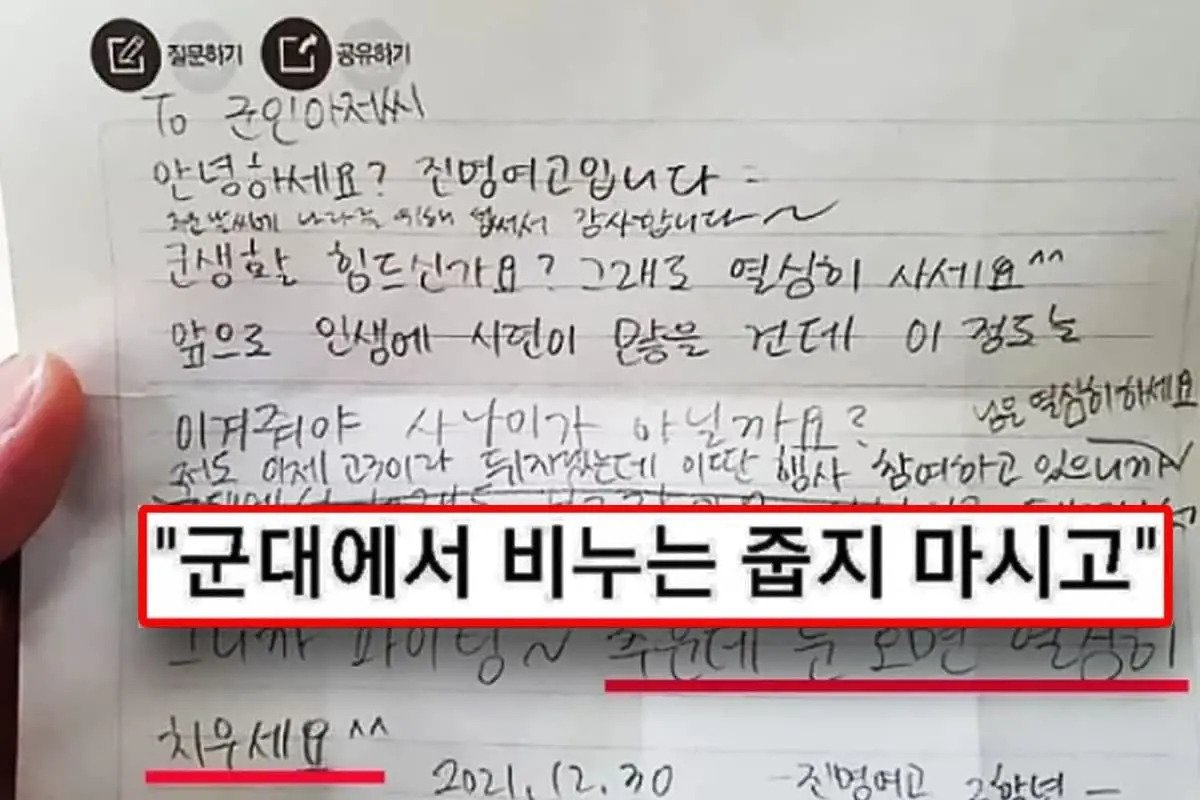 질문하기 공유하기
To 군인아저씨
안녕하세요? 진명여고입니다
추운 날씨에 나라를 위해 힘써서 감사합니다~
군생활 힘드신가요? 그래도 열심히 사세요^^
앞으로 인생에 시련이 많을 건데 이 정도는
이겨줘야 사나이가 아닐까요?
님은 열심히하세요
저도 이제 고3이라 뒤지겠는데 이딴 행사 참여하고 있으니까~
"군대에서 비누는 줍지 마시고"
그니까 파이팅~ 추운데 눈 오면 열심히
치우세요^^
2021.12.30 -진명여고 2학년-